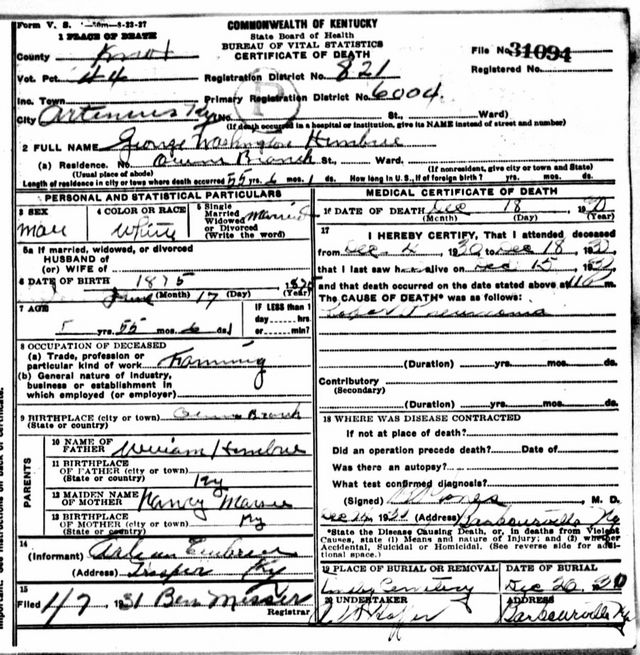 Form V. S. 8-23-27
COMMONWEALTH OF KENTUCKY
State Board of Health
BUREAU OF VITAL STATISTICS
CERTIFICATE OF DEATH
1 PLACE OF DEATH
County Knox
File No. 31094
Vot. Pct. 44
Registration District No. 821
Registered No.
Inc. Town
Primary Registration District No. 6004
City Artemus Ky St., Ward)
(If death occurred in a hospital or institution, give its NAME instead of street and number)
2 FULL NAME George Washington
(a) Residence. No. Branch St., Ward.
(Usual place of abode) (If nonresident, give city or town and State)
Length of residence in city or town where death occurred 55 yrs. 6 mos. 1 ds. How long in U. S., if of foreign birth? yrs. mos. ds.
PERSONAL AND STATISTICAL PARTICULARS
3 SEX
Male
4 COLOR OR RACE
White
5 Single
Married
Widowed
or Divorced
(Write the word)
Married
5a If married, widowed, or divorced
HUSBAND of
(or) WIFE of
6 DATE OF BIRTH 1875
June 17
(Month) (Day) (Year)
7 AGE
55 yrs. mos. 6 ds. 1
IF LESS than 1
day hrs.
or min.
8 OCCUPATION OF DECEASED
(a) Trade, profession or
particular kind of work Farming
(b) General nature of industry,
business or establishment in
which employed (or employer)
9 BIRTHPLACE (city or town) Branch
(State or country)
PARENTS
10 NAME OF
FATHER William
11 BIRTHPLACE
OF FATHER (city or town)
(State or country) Ky
12 MAIDEN NAME
OF MOTHER Nancy
13 BIRTHPLACE
OF MOTHER (city or town) Ky
(State or country)
14
(Informant)
(Address) Trosper Ky
15
Filed 1/7 1931 Ben Messer
Registrar
MEDICAL CERTIFICATE OF DEATH
16 DATE OF DEATH Dec 18 1930
(Month) (Day) (Year)
17 I HEREBY CERTIFY, That I attended deceased
from Dec. 4, 1930 to Dec 18, 1930
that I last saw h alive on Dec 15, 1930
and that death occurred on the date stated above at m.
The CAUSE OF DEATH* was as follows:
Lobar Pneumonia
(Duration) yrs. mos. ds.
Contributory
(Secondary)
(Duration) yrs. mos. ds.
18 WHERE WAS DISEASE CONTRACTED
If not at place of death?
Did an operation precede death? Date of
Was there an autopsy?
What test confirmed diagnosis?
(Signed) M. D.
Dec 1930 (Address) Barbourville Ky
*State the Disease Causing Death, or, in deaths from Violent
Causes, state (1) Means and nature of Injury; and (2) whether
Accidental, Suicidal or Homicidal. (See reverse side for addi-
tional space.)
19 PLACE OF BURIAL OR REMOVAL
Cemetery
DATE OF BURIAL
Dec 20 30
20 UNDERTAKER
ADDRESS
Barbourville Ky